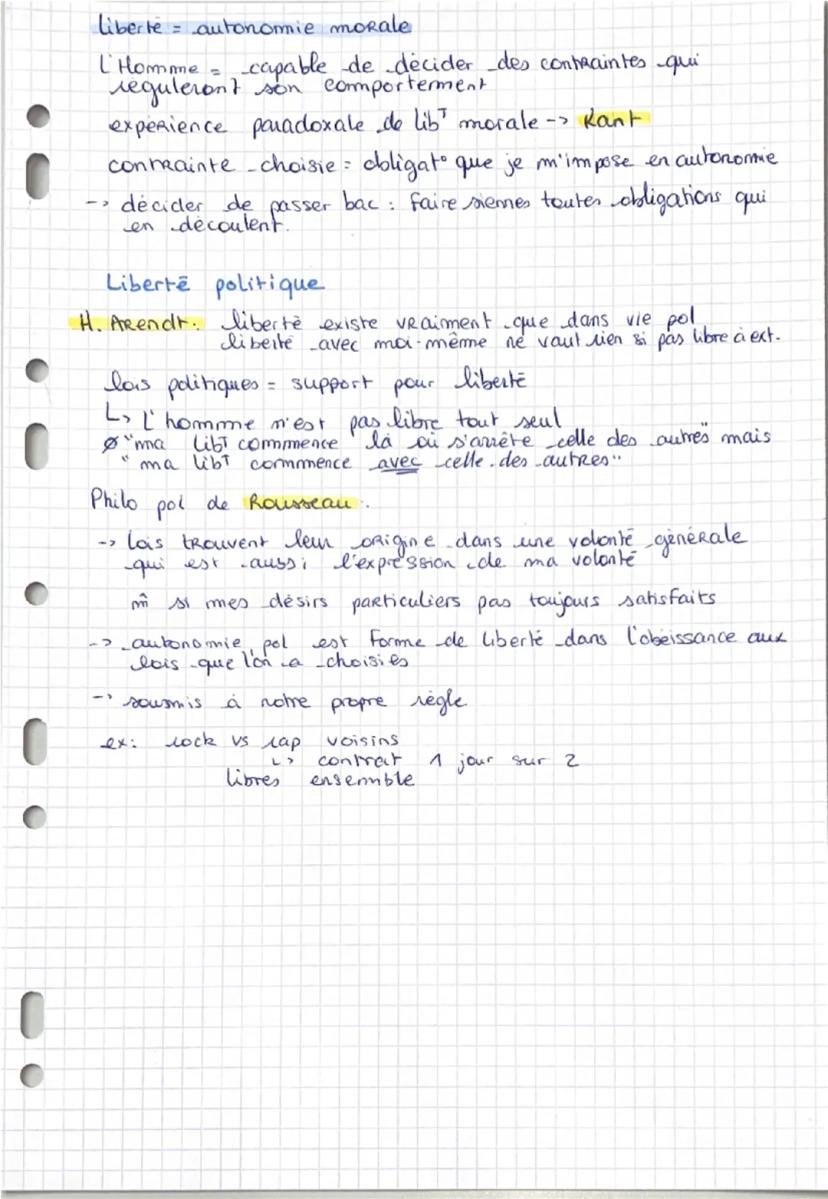 liberté = autonomie morale
L'Homme = capable de décider des contraintes qui
réguleront son comportement
expérience paradoxale de libT morale -> Kant
contrainte choisie = obligat° que je m'impose en autonomie
-> décider de passer bac : faire siennes toutes obligations qui
en découlent.
Liberté politique
H. Arendt : liberté existe vraiment que dans vie pol
liberté avec moi-même ne vaut rien si pas libre à ext.
lois politiques = support pour liberté
↳ L'homme n'est pas libre tout seul
Ø "ma libT commence là où s'arrête celle des autres" mais
"ma libT commence avec celle des autres"
Philo pol de Rousseau :
-> Lois trouvent leur origine dans une volonté générale
qui est aussi l'expression de ma volonté
m̂ si mes désirs particuliers pas toujours satisfaits
-> autonomie pol est forme de liberté dans l'obéissance aux
lois que l'on a choisies
-> soumis à notre propre règle
ex : rock vs rap voisins
↳ contrat 1 jour sur 2
libres ensemble